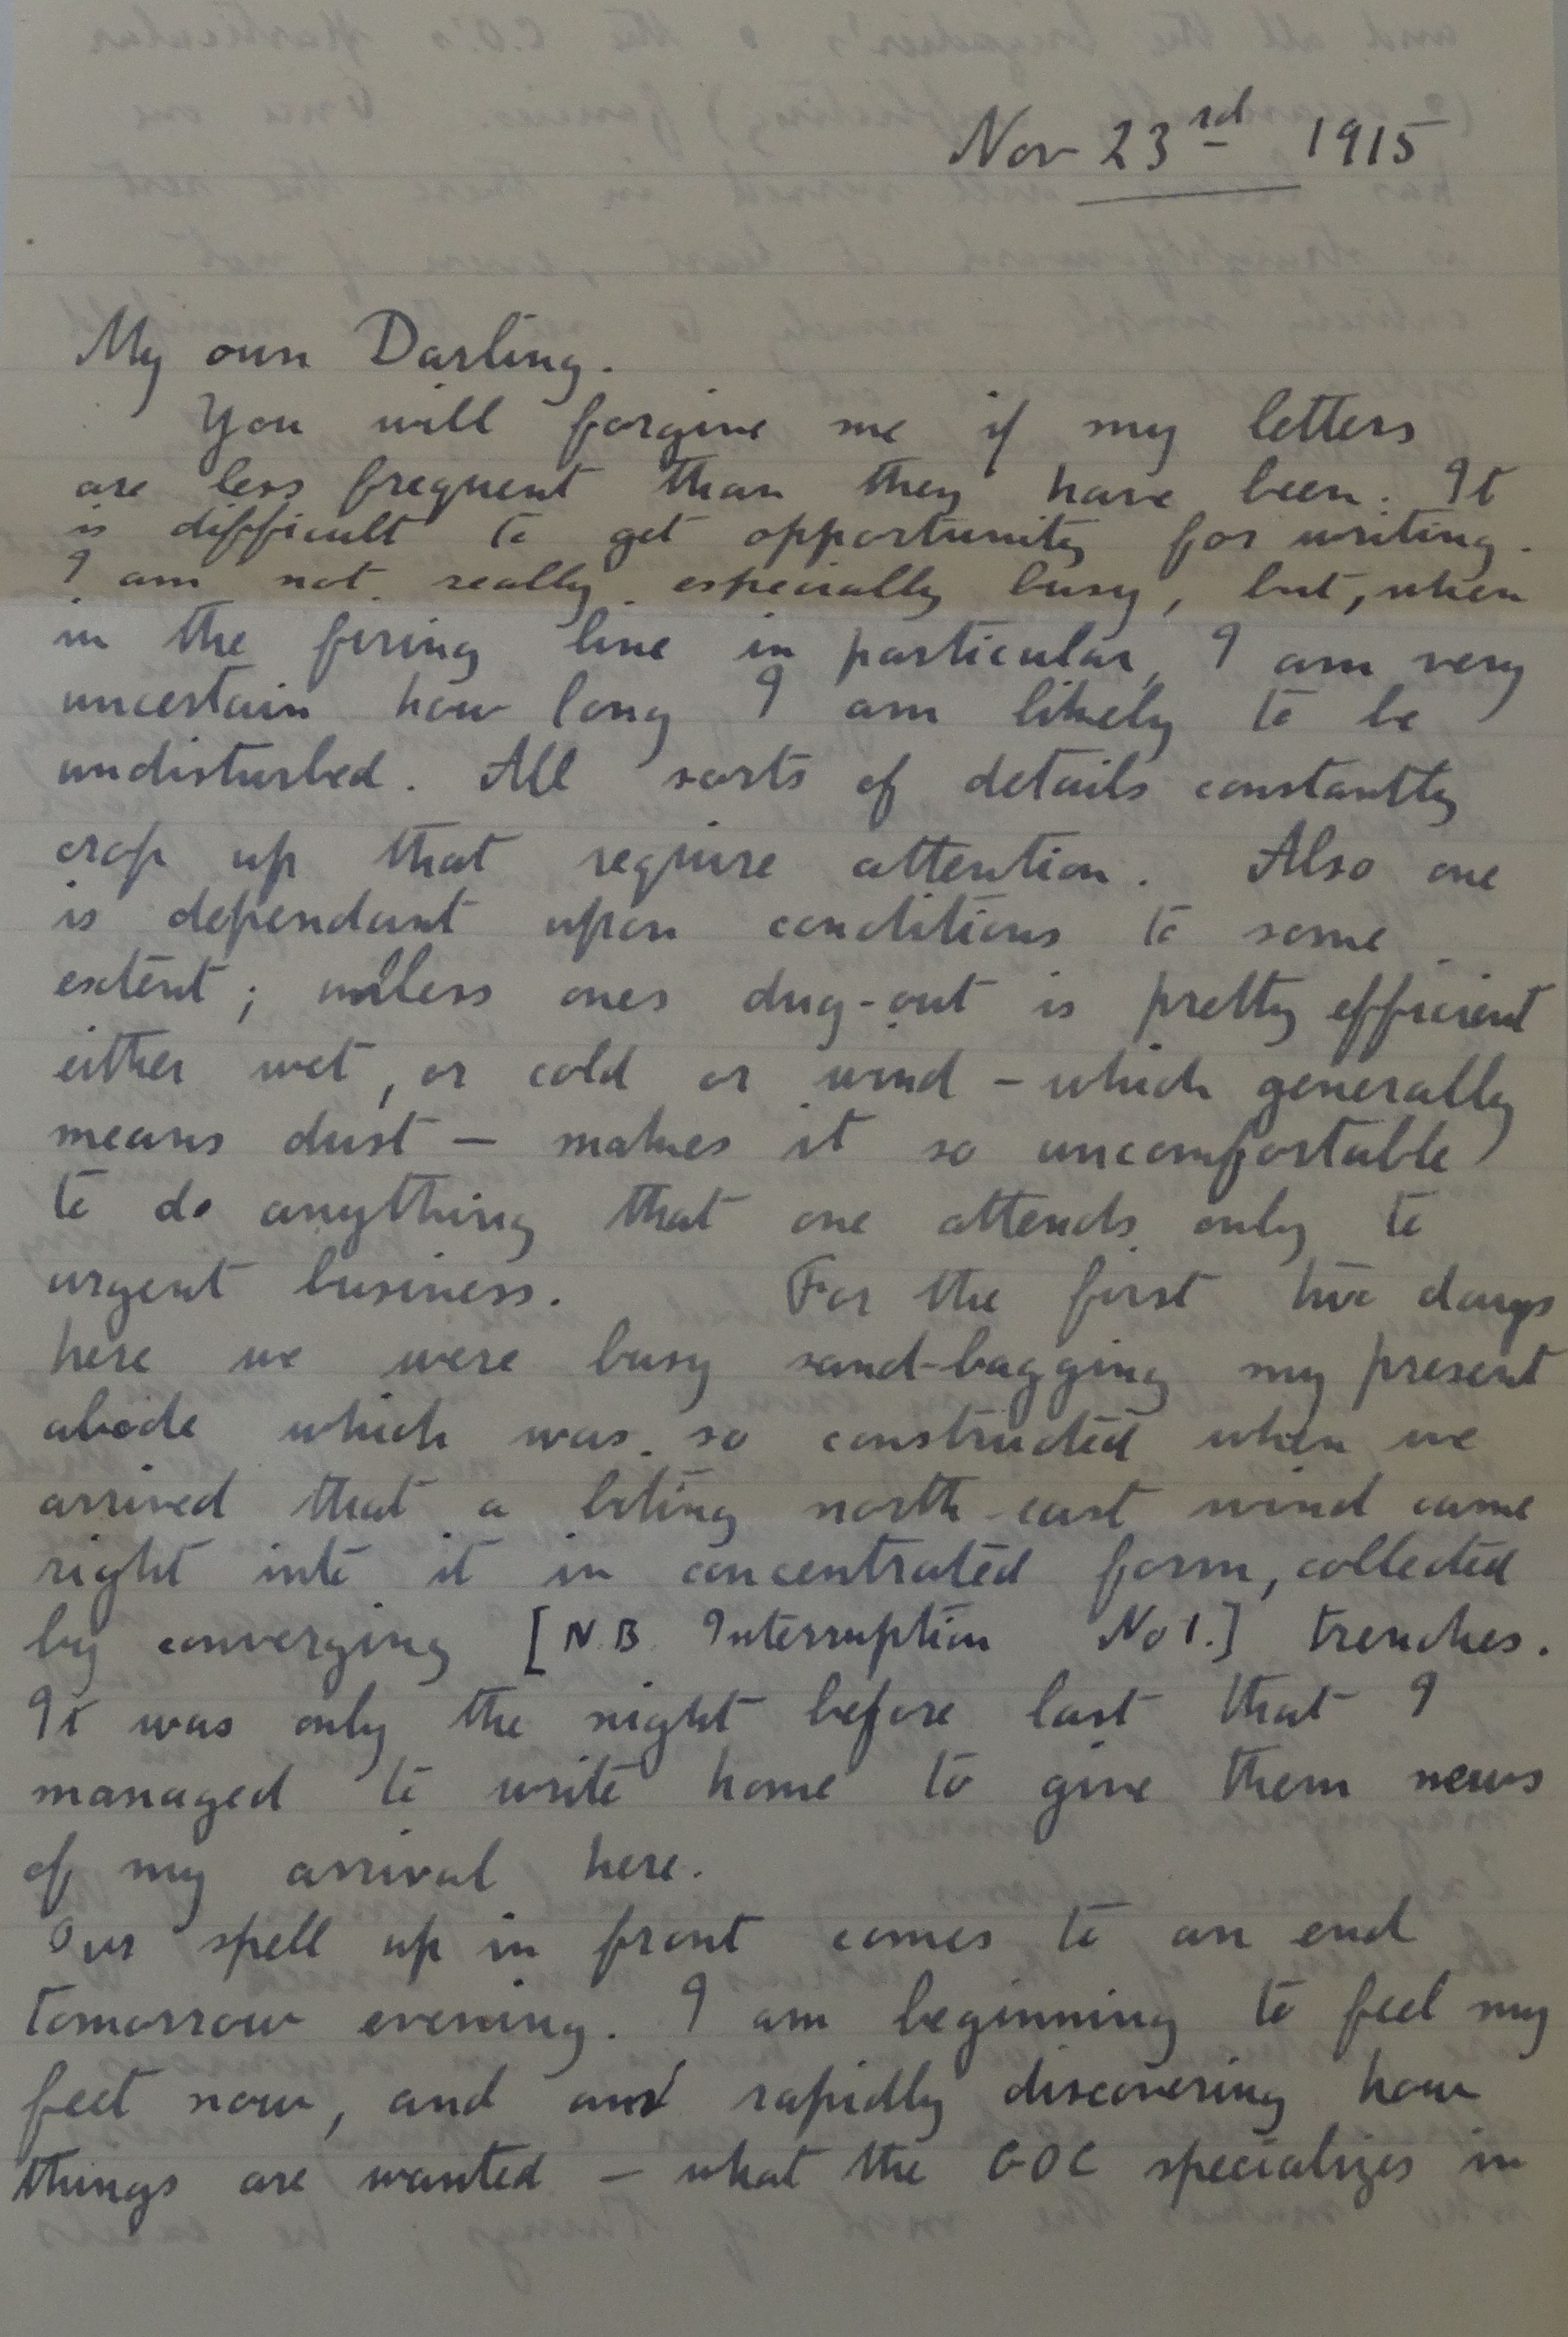 Nov 23rd 1915
My own Darling.
You will forgive me if my letters
are less frequent than they have been. It
is difficult to get opportunity for writing.
I am not really especially busy, but, when
in the firing line in particular, I am very
uncertain how long I am likely to be
undisturbed. All sorts of details constantly
crop up that require attention. Also one
is dependant upon conditions to some
extent; unless ones dug-out is pretty efficient
either wet, or cold or wind - which generally
means dust - makes it so uncomfortable
to do anything that one attends only to
urgent business. For the first two days
here we were busy sand-bagging my present
abode which was so constructed when we
arrived that a biting north-east wind came
right into it in concentrated form, collected
by converging [N.B. Interruption No 1.] trenches.
It was only the night before last that I
managed to write home to give them news
of my arrival here.
Our spell up in front comes to an end
tomorrow evening. I am beginning to feel my
feet now, and am rapidly discovering how
things are wanted - what the GOC specializes in